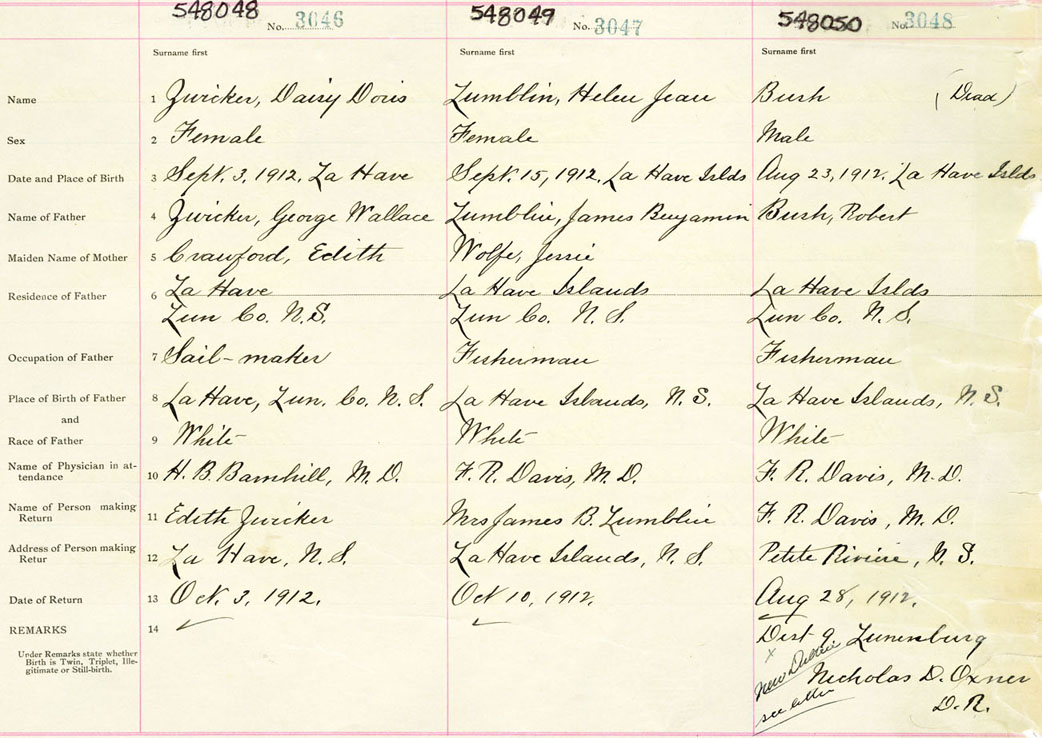 548048 No. 3046 548049 No. 3047 548050 No. 3048
Surname first Surname first Surname first
Name 1 Zwicker, Daisy Doris Zumblin, Helen Jean Bush (Dead)
Sex 2 Female Female Male
Date and Place of Birth 3 Sept. 3, 1912, La Have Sept. 15, 1912, La Have Islds Aug 23, 1912, La Have Islds
Name of Father 4 Zwicker, George Wallace Zumblin, James Benjamin Bush, Robert
Maiden Name of Mother 5 Crawford, Edith Wolfe, Jessie
Residence of Father 6 La Have La Have Islands La Have Islds
Lun Co. N.S. Lun Co. N.S. Lun Co. N.S.
Occupation of Father 7 Sail-maker Fisherman Fisherman
Place of Birth of Father 8 La Have, Lun. Co. N.S. La Have Islands, N.S. La Have Islands, N.S.
and
Race of Father 9 White White White
Name of Physician in at-
tendance 10 H. B. Barnhill, M.D. F. R. Davis, M.D. F. R. Davis, M.D.
Name of Person making
Return 11 Edith Zwicker Mrs James B. Zumblin F. R. Davis, M.D.
Address of Person making
Retur 12 La Have, N.S. La Have Islands, N.S. Petite Riviere, N.S.
Date of Return 13 Oct. 3, 1912. Oct 10, 1912. Aug 28, 1912.
REMARKS 14
Dist 9. Lunenburg
Under Remarks state whether
Birth is Twin, Triplet, Ille-
gitimate or Still-birth.
New Dublin
see letter
Nicholas D. Oxner
D.R.